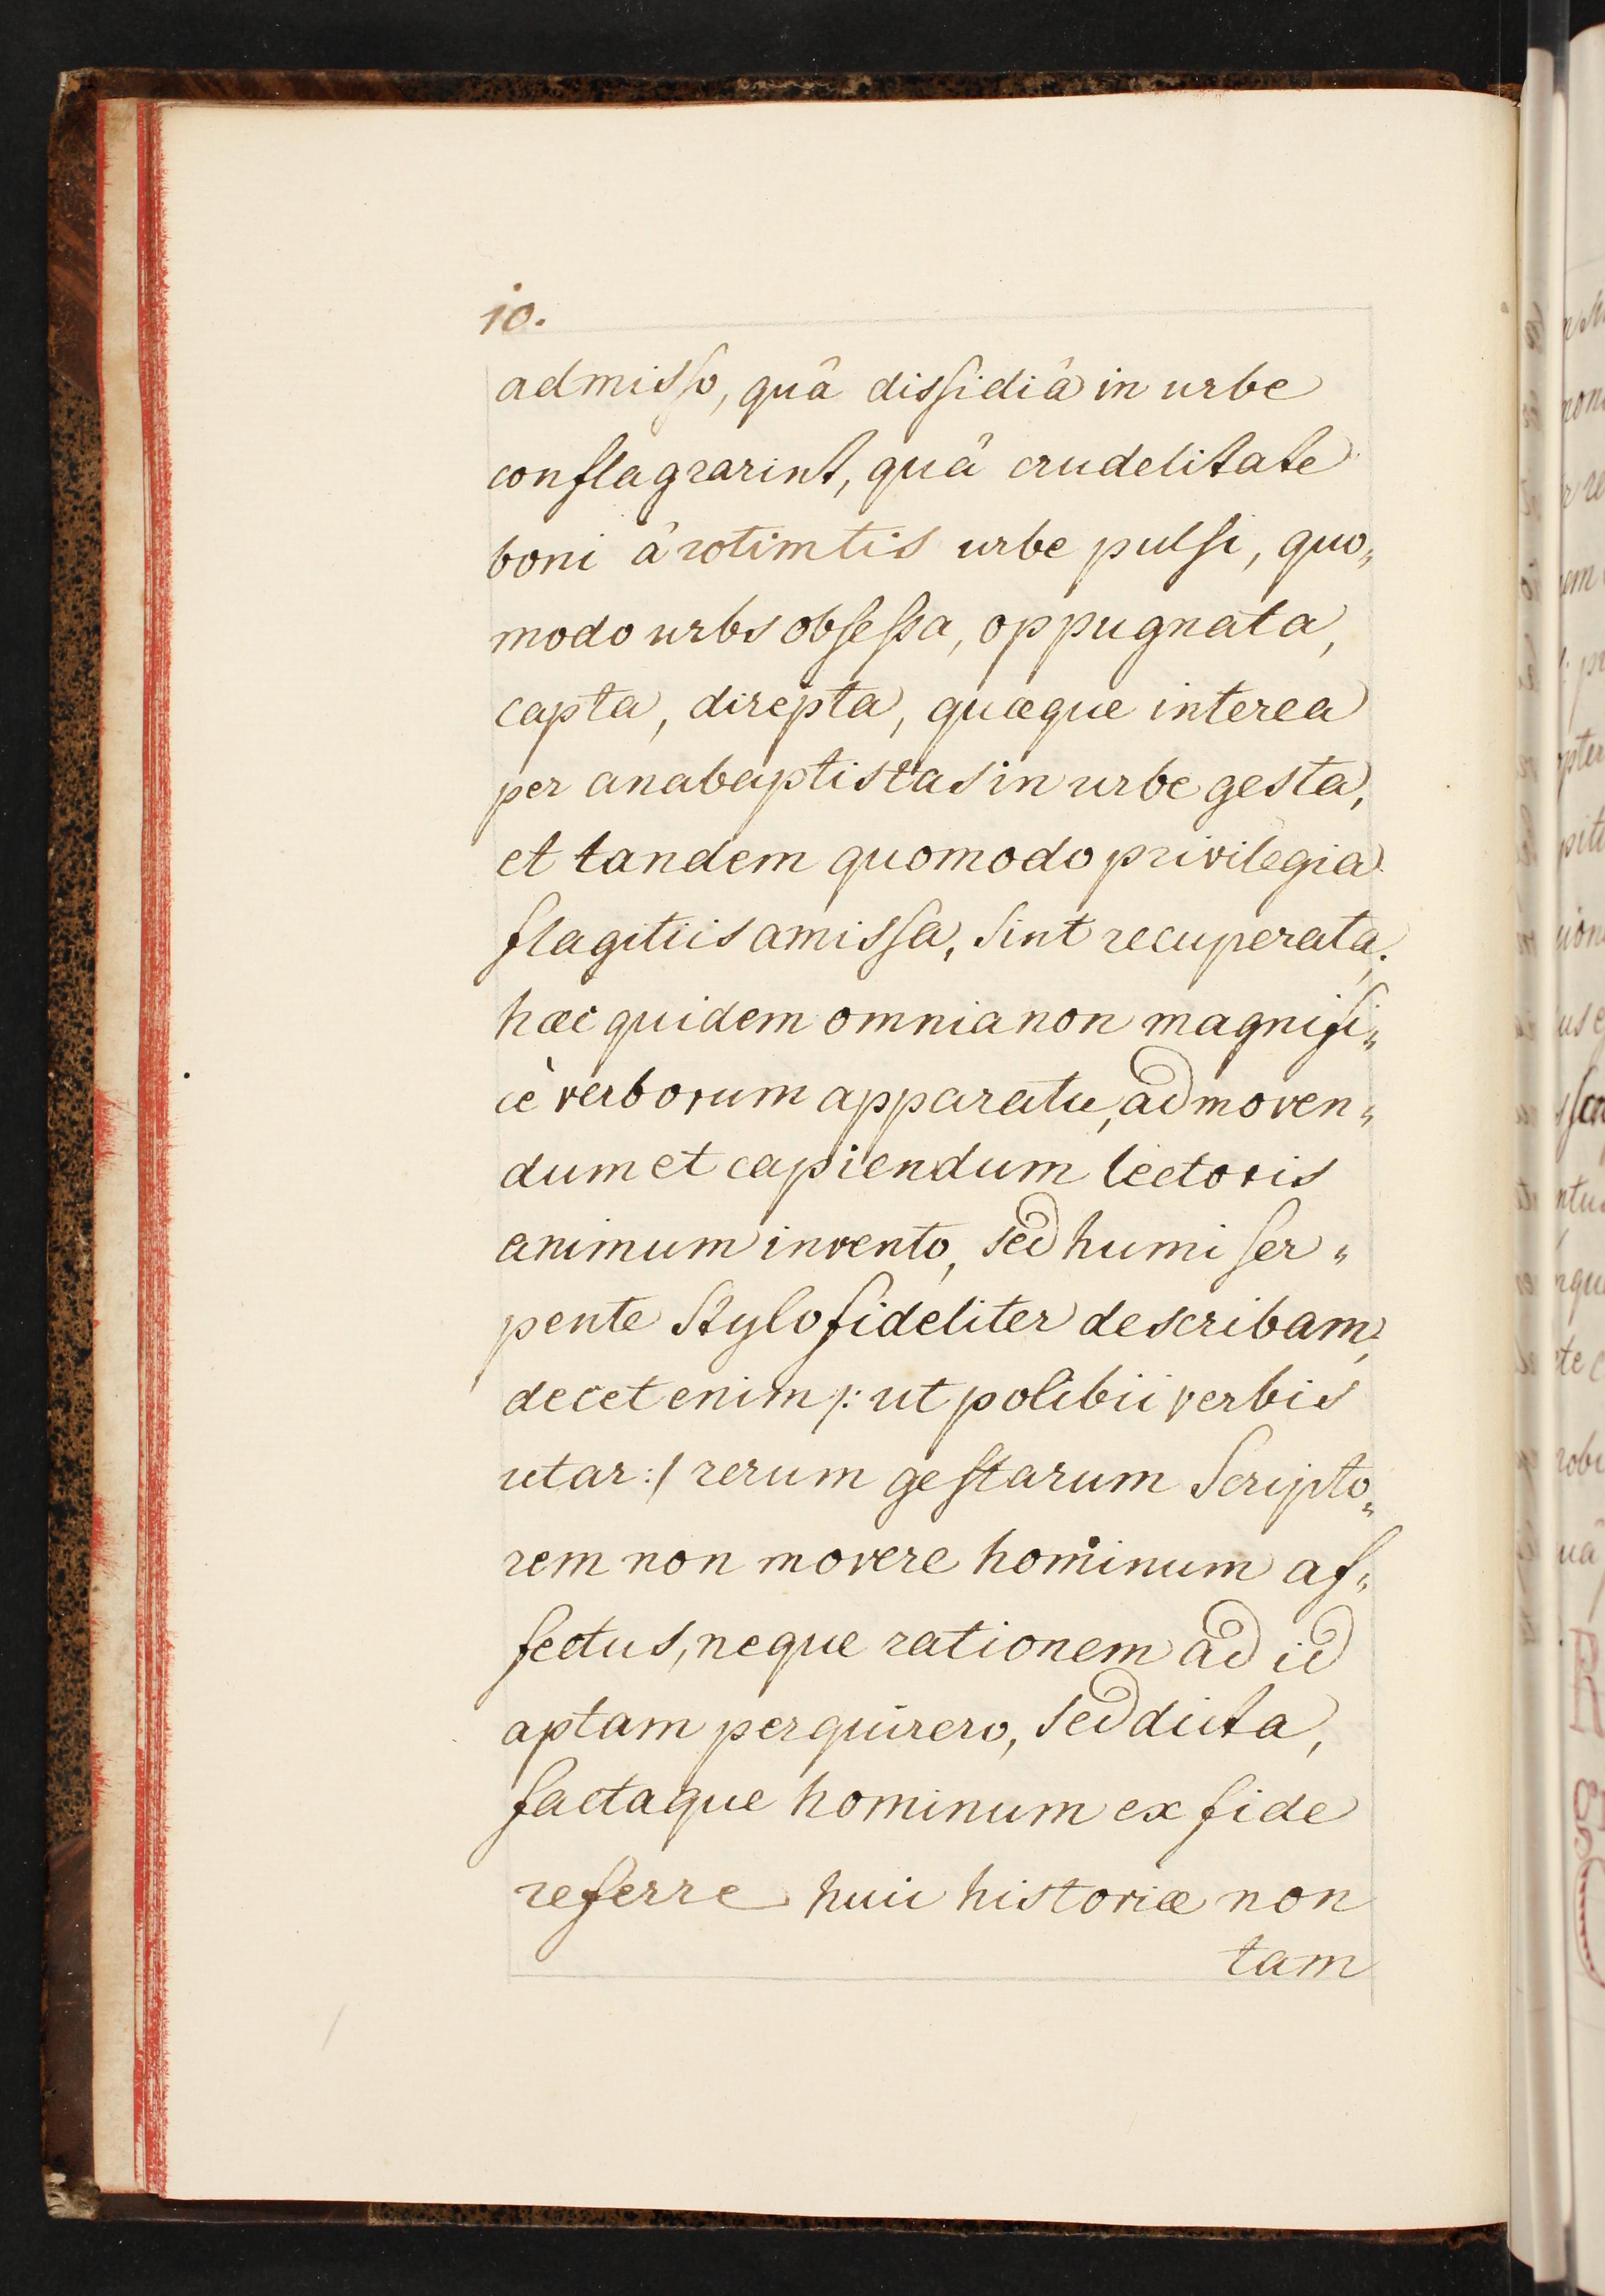 10.
admisso, quâ dissidiâ in urbe
conflagrarint, quâ crudelitate
boni â rotimtis urbe pulsi, quo„
modo urbs obsessa, oppugnata,
capta, direpta, quæque interea
per anabaptistas in urbe gesta,
et tandem quomodo privilegia
flagitiis amissa, sint recuperata.
hæc quidem omnia non magnifi„
cè verborum apparatu, ad moven„
dum et capiendum lectoris
animum invento, sed humi ser„
pente stylo fideliter describam,
decet enim /: ut polibii verbis
utar :/ rerum gestarum scripto„
rem non movere hominum af„
fectus, neque rationem ad id
aptam perquirero, sed dicta,
factaque hominum ex fide
referre huic historiæ non
tam